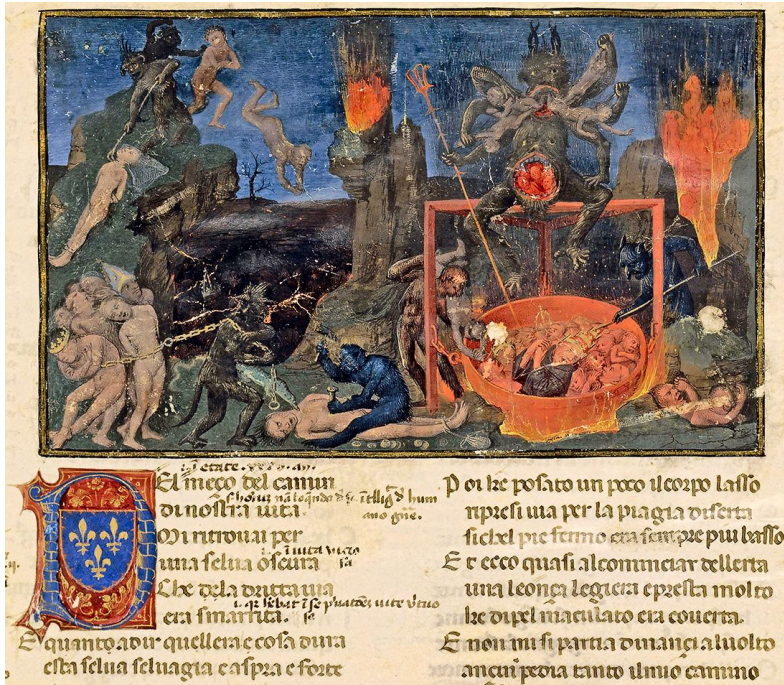 El meço del camin
di nostra uita
Mi ritrouai per
una selua oscura
Che dela dritta uia
era smarrita.
E quanto adir quellera e cosa dura
esta selua seluagia e aspra e forte
Poi hre posato un poco il corpo lasso
ripresi uia per la piagia diserta
sichel pie fermo era sempre piu basso
Et ecco quasi al cominciar dellerta
una leonça legiera e presta molto
hre di pel maculato era couerta.
E non mi si partia dinançi al uolto
anci impedia tanto il mio camino